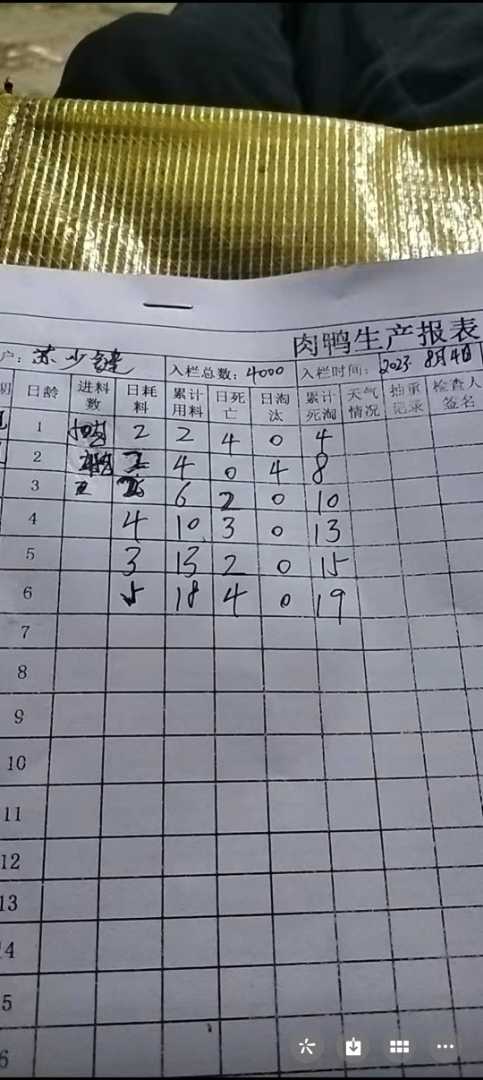 肉鸭生产报表
户: 苏少 入栏总数: 4000 入栏时间: 2023 8月4日
日龄 进料数 日耗料 累计用料 日死亡 日淘汰 累计死淘 天气情况 抽重记录 检查人签名
1 2 2 4 0 4
2 4 0 4 8
3 6 2 0 10
4 4 10 3 0 13
5 3 13 2 0 15
6 5 18 4 0 19
7
8
9
10
11
12
13
14
5
6